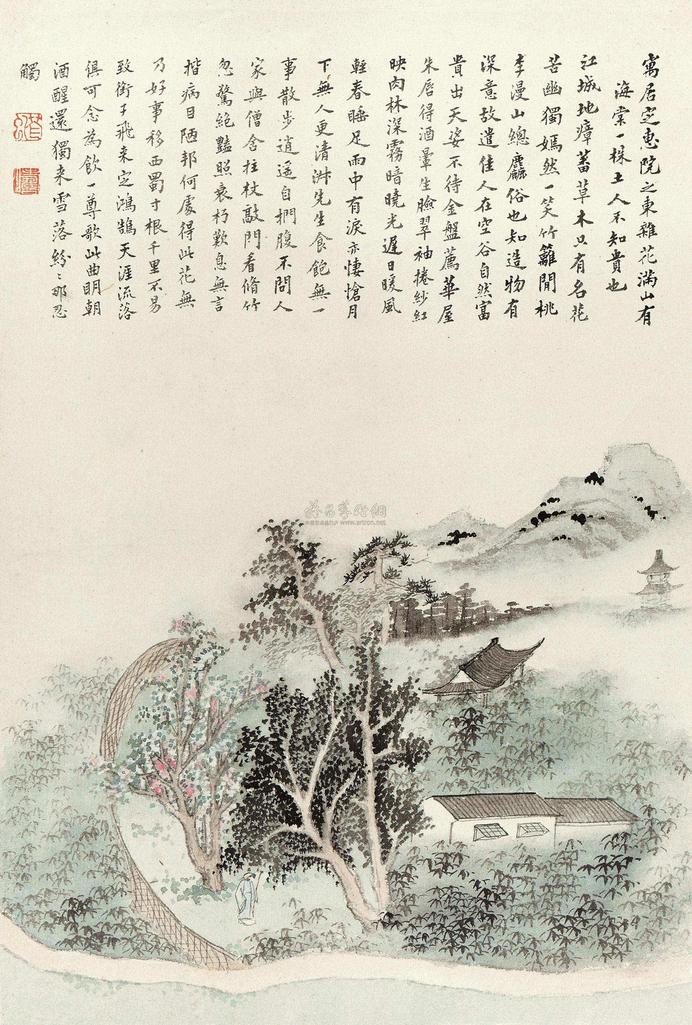 寓居定惠院之東雜花滿山有
海棠一株土人不知貴也
江城地瘴蕃草木只有名花
苦幽獨嫣然一笑竹籬間桃
李漫山總麤俗也知造物有
深意故遣佳人在空谷自然富
貴出天姿不待金盤薦華屋
朱唇得酒暈生臉翠袖捲紗紅
映肉林深霧暗曉光遲日暖風
輕春睡足雨中有淚亦悽愴月
下無人更清淑先生食飽無一
事散步逍遥自捫腹不問人
家與僧舍拄杖敲門看脩竹
忽驚絕豔照衰朽歎息無言
揩病目陋邦何處得此花無
乃好事移西蜀寸根千里不易
致銜子飛来定鴻鵠天涯流落
俱可念為飲一尊歌此曲明朝
酒醒還獨来雪落紛〻那忍
觸
www.artron.net